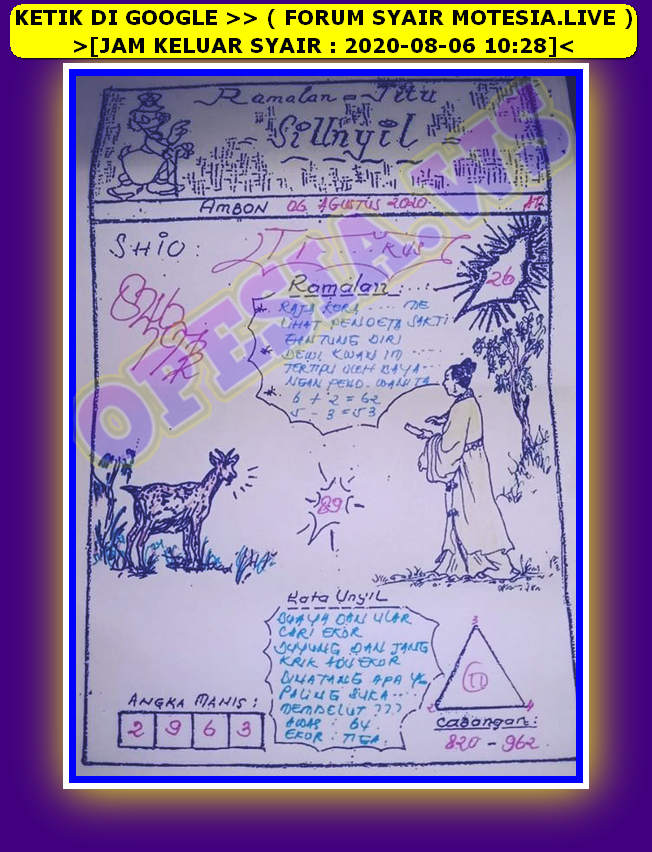 KETIK DI GOOGLE >> ( FORUM SYAIR MOTESIA.LIVE )
>[JAM KELUAR SYAIR : 2020-08-06 10:28]<
Ramalan = Jitu
SiUnyil
AMBON 06 AGUSTUS 2020
SHIO : TIKUS
26
OFESIA.WS
Ramalan :
RAJA KERA .... ME
LIHAT PENDETA SAKTI
GANTUNG DIRI
DEWI KWAN IM ....
TERTIPU OLEH BAYA...
NGAN PEND. WANITA
6 + 2 = 62
5 - 3 = 53
89
Kata Unyil
BUAYA DAN ULAR
CARI EKOR
DUYUNG DAN JANG
KRIK ADU EKOR
BINATANG APA YG
PALING SUKA .....
MEMBELUT ???
AWAS : 64.
EKOR : TIGA.
3
2 4
ANGKA MANIS :
2 9 6 3
Cabangan :
820 - 962